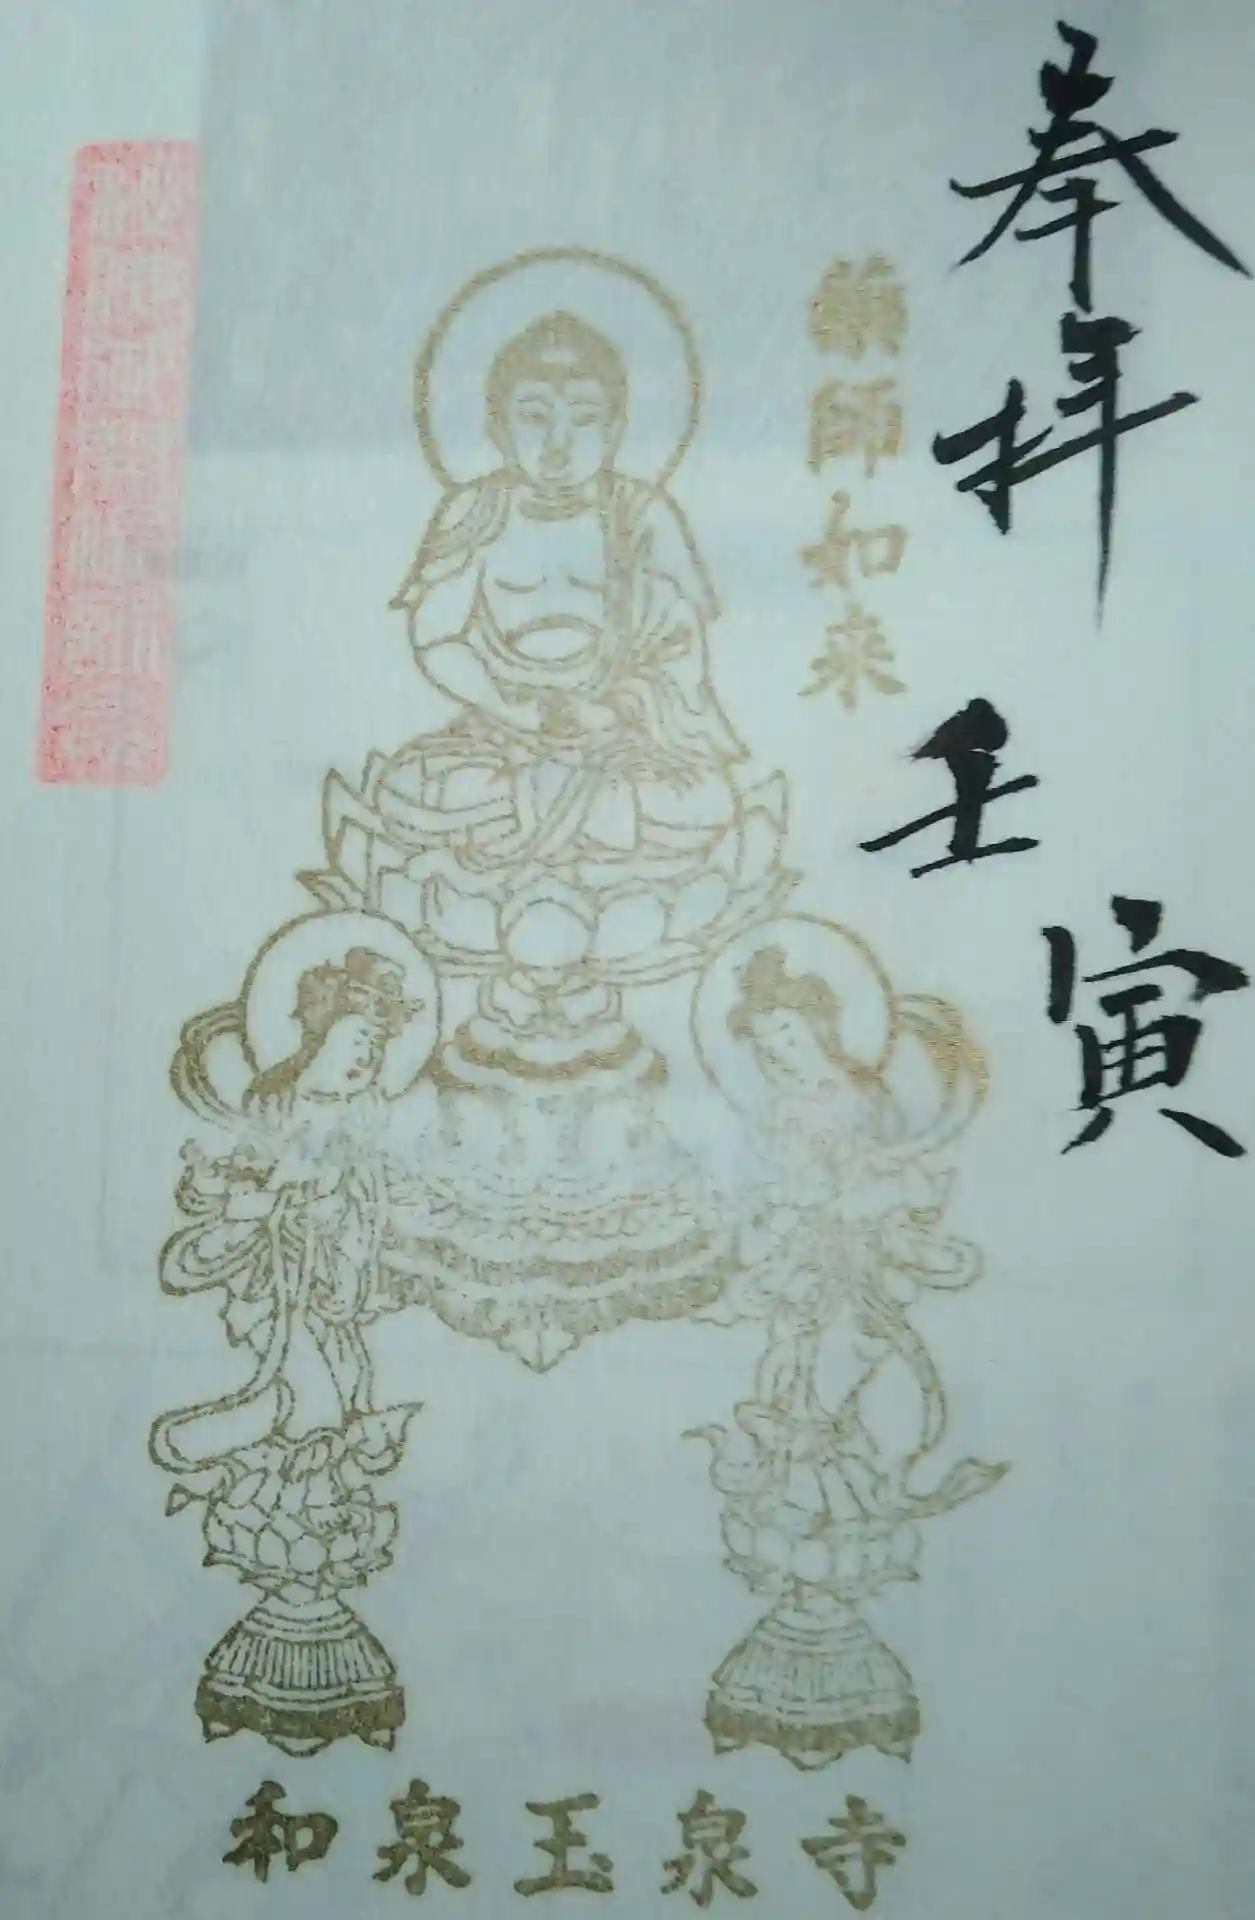 奉拝 壬寅
薬師如来
和泉玉泉寺